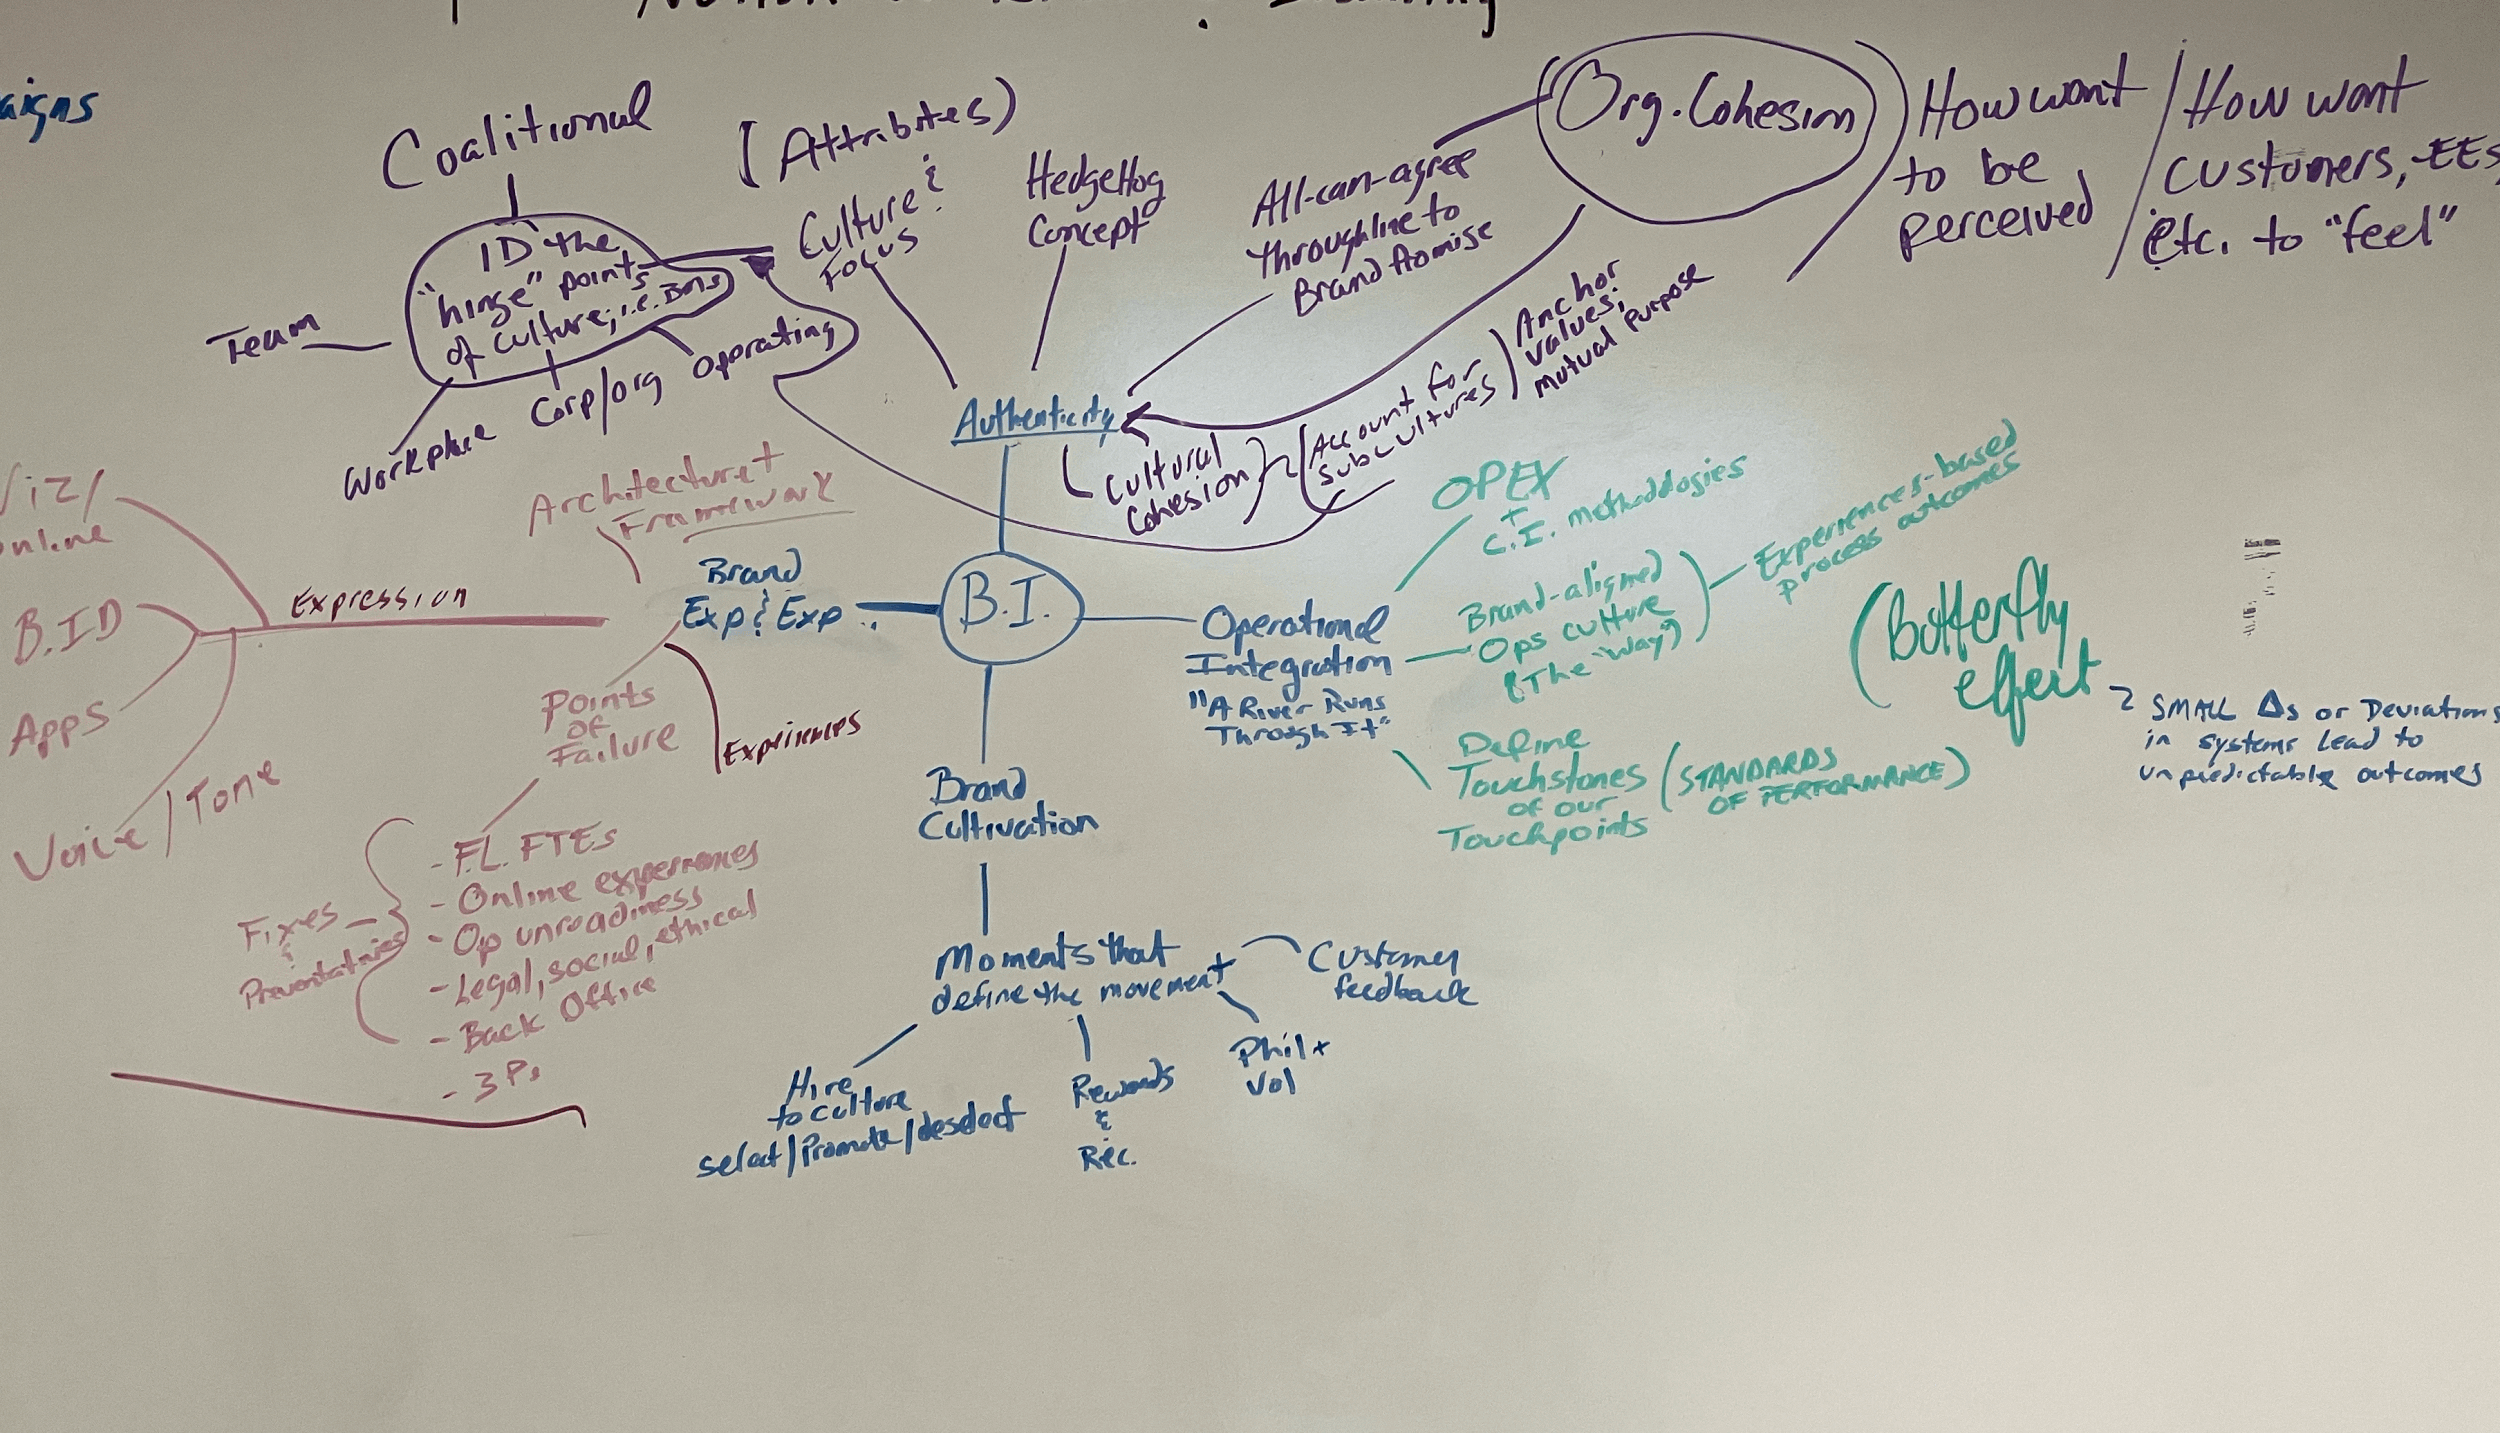 aigns
Coalitional
(Attributes)
ID the
"hinge" points
of culture; i.e. BMs
Team
Workplace
Corp/org
Operating
Culture &
Focus
HedgeHog
Concept
All-can-agree
throughline to
Brand Promise
Org. Cohesion
How want
to be
perceived
/
How want
customers, EEs,
etc. to "feel"
Anchor
values;
mutual purpose
Account for
subcultures
Authenticity
Cultural
Cohesion
Viz/
online
B.ID
Apps
Voice/Tone
Expression
Architecture +
Framework
Brand
Exp & Exp
B.I.
Points
of
Failure
Experiences
Fixes
&
Preventatives
- F.L. FTEs
- Online experiences
- Op unreadiness
- Legal, social, ethical
- Back office
- 3Ps
Operational
Integration
"A River Runs
Through It"
OPEX
+
C.I. methodologies
Brand-aligned
Ops culture
(The "way")
Experiences-based
process outcomes
Define
Touchstones
of our
Touchpoints
(STANDARDS
OF PERFORMANCE)
(Butterfly
effect
SMALL Δs or Deviations
in systems lead to
unpredictable outcomes
Brand
Cultivation
Moments that
define the movement
Customer
feedback
Phil +
Vol
Rewards
&
Rec.
Hire
to culture
select/promote/deselect